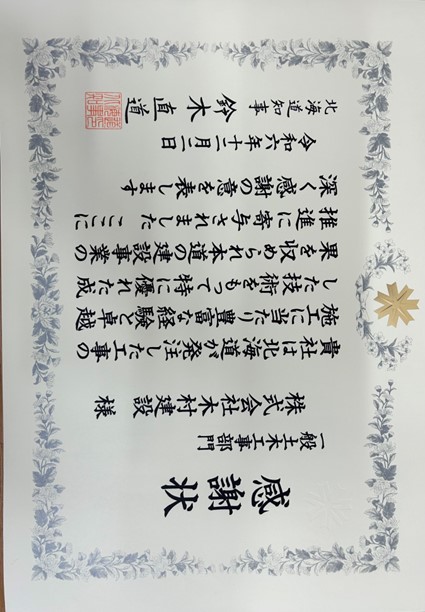 感謝状
一般土木工事部門
株式会社木村建設 様
貴社は北海道が発注した工事の
施工に当たり豊富な経験と卓越
した技術をもって特に優れた成
果を収められ本道の建設事業の
推進に寄与されました ここに
深く感謝の意を表します
令和六年十二月二日
北海道知事 鈴木直道